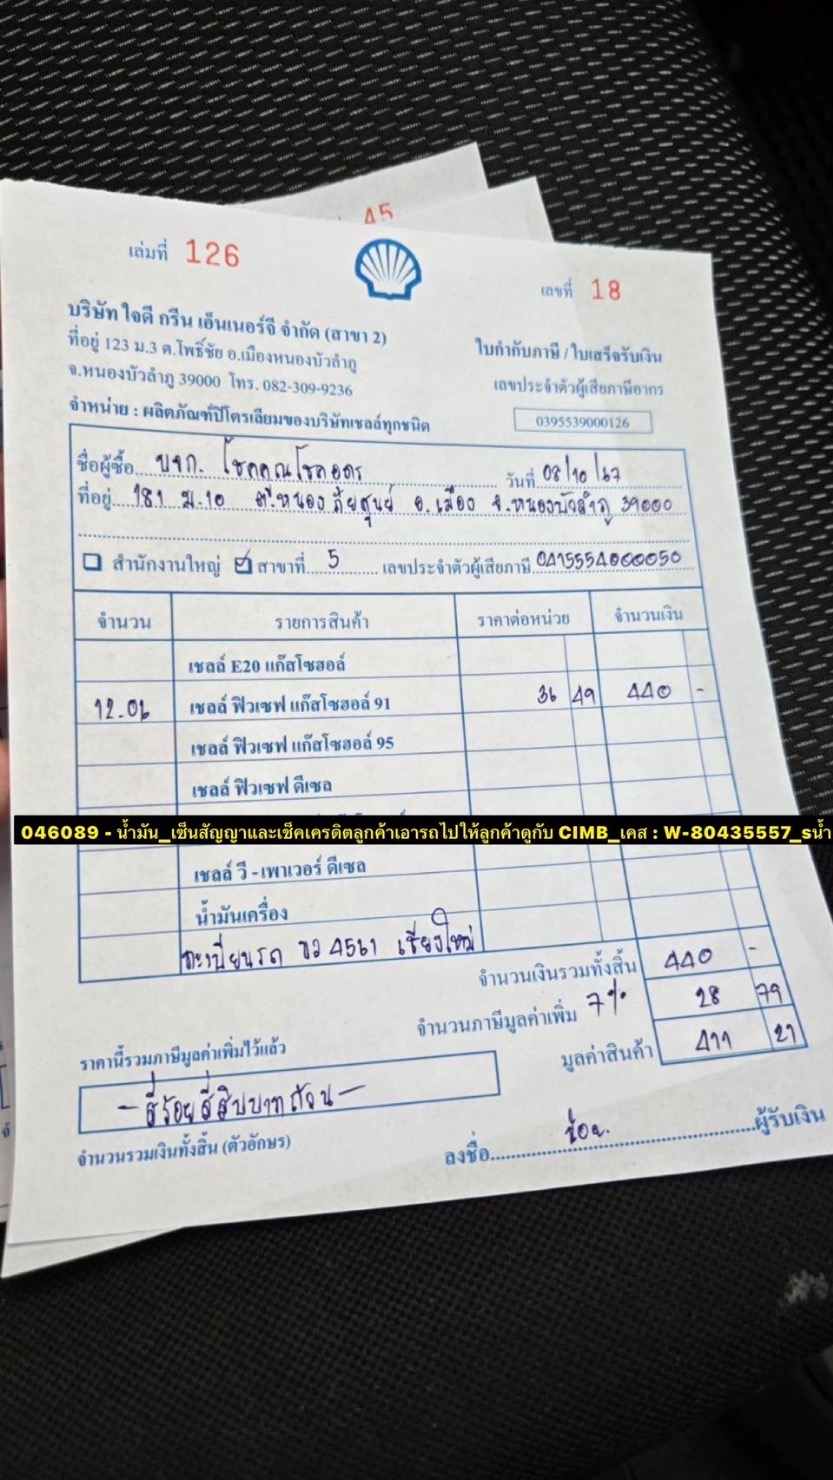 45
เล่มที่ 126
เลขที่ 18
บริษัท ใจดี กรีน เอ็นเนอร์จี จำกัด (สาขา 2)
ที่อยู่ 123 ม.3 ต.โพธิ์ชัย อ.เมืองหนองบัวลำภู
จ.หนองบัวลำภู 39000 โทร. 082-309-9236
จำหน่าย : ผลิตภัณฑ์ปิโตรเลียมของบริษัทเชลล์ทุกชนิด
ใบกำกับภาษี / ใบเสร็จรับเงิน
เลขประจำตัวผู้เสียภาษีอากร
0395539000126
ชื่อผู้ซื้อ บจก. โชคคูณโชคอุดร วันที่ 08/10/67
ที่อยู่ 181 ม.10 ต.หนองภัยศูนย์ อ.เมือง จ.หนองบัวลำภู 39000
สำนักงานใหญ่ ☑ สาขาที่ 5 เลขประจำตัวผู้เสียภาษี 0415554000050
จำนวน รายการสินค้า ราคาต่อหน่วย จำนวนเงิน
เชลล์ E20 แก๊สโซฮอล์
12.06 เชลล์ ฟิวเซฟ แก๊สโซฮอล์ 91 36 49 440 -
เชลล์ ฟิวเซฟ แก๊สโซฮอล์ 95
เชลล์ ฟิวเซฟ ดีเซล
046089 - น้ำมัน_เซ็นสัญญาและเช็คเครดิตลูกค้าเอารถไปให้ลูกค้าดูกับ CIMB_เคส : W-80435557_sน้ำ
เชลล์ วี - เพาเวอร์ ดีเซล
น้ำมันเครื่อง
ทะเบียนรถ ขว 4561 เชียงใหม่
จำนวนเงินรวมทั้งสิ้น 440 -
จำนวนภาษีมูลค่าเพิ่ม 7% 28 79
ราคานี้รวมภาษีมูลค่าเพิ่มไว้แล้ว
มูลค่าสินค้า 411 21
- สี่ร้อยสี่สิบบาทถ้วน -
จำนวนรวมเงินทั้งสิ้น (ตัวอักษร)
ลงชื่อ ผู้รับเงิน